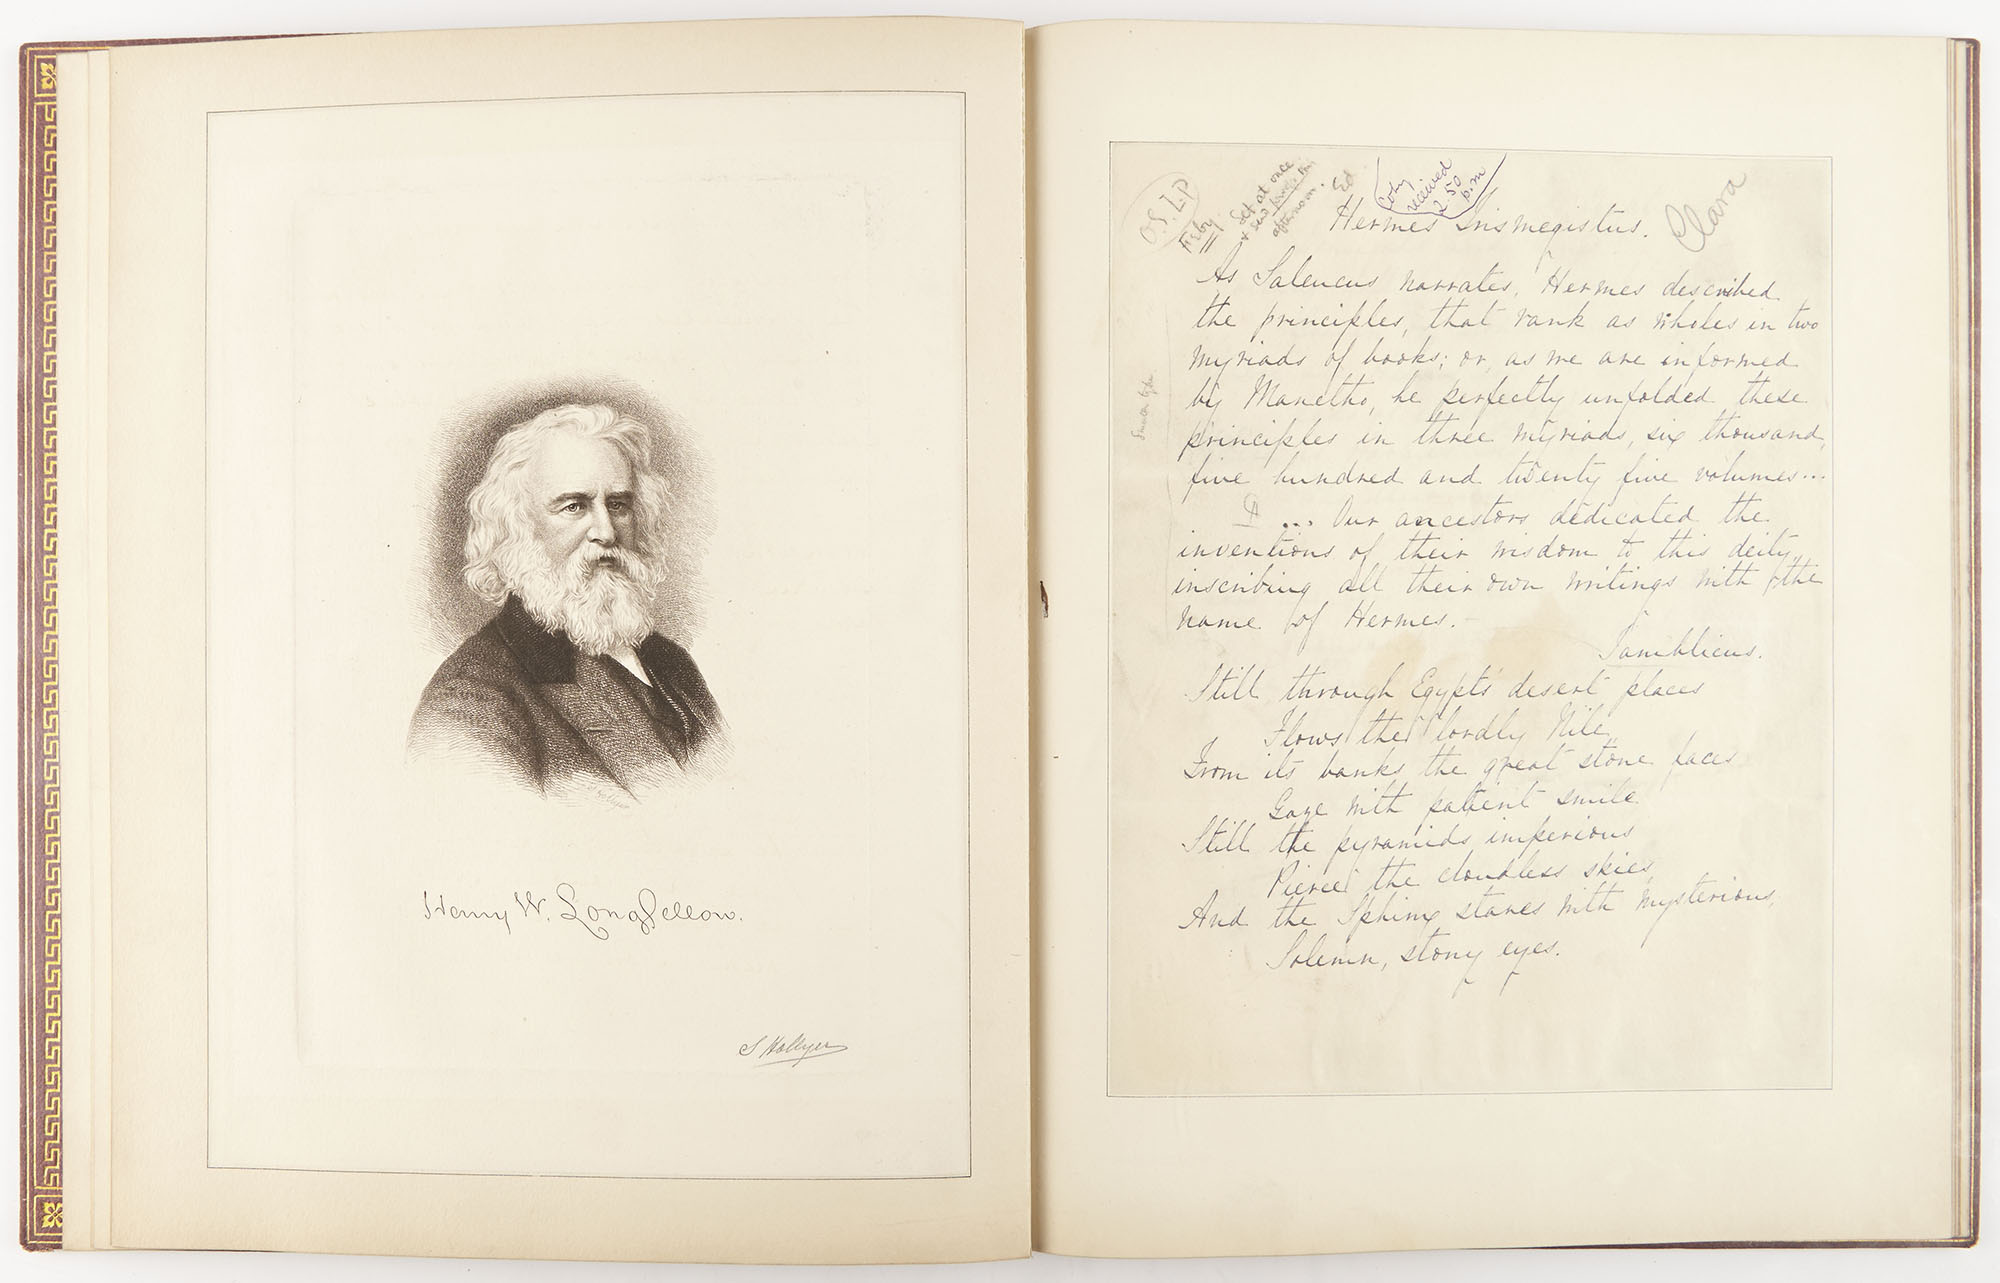 S Hollyer
Henry W. Longfellow.
S Hollyer
O.S. L.P
Feby
11
Set at once
& send proof this
afternoon. Ed
Copy
received
2.50
p.m
Clara
Hermes Trismegistus.
As Saleucus narrates, Hermes described
the principles, that rank as wholes in two
myriads of books; or, as we are informed
by Manetho, he perfectly unfolded these
principles in three myriads, six thousand,
five hundred and twenty five volumes...
... Our ancestors dedicated the
inventions of their wisdom to this deity,
inscribing all their own writings with the
name of Hermes.
Iamblicus.
Still through Egypt's desert places
Flows the lordly Nile,
From its banks the great stone faces
Gaze with patient smile
Still the pyramids imperious
Pierce the cloudless skies,
And the Sphinx stares with mysterious,
Solemn, stony eyes.
Smaller type